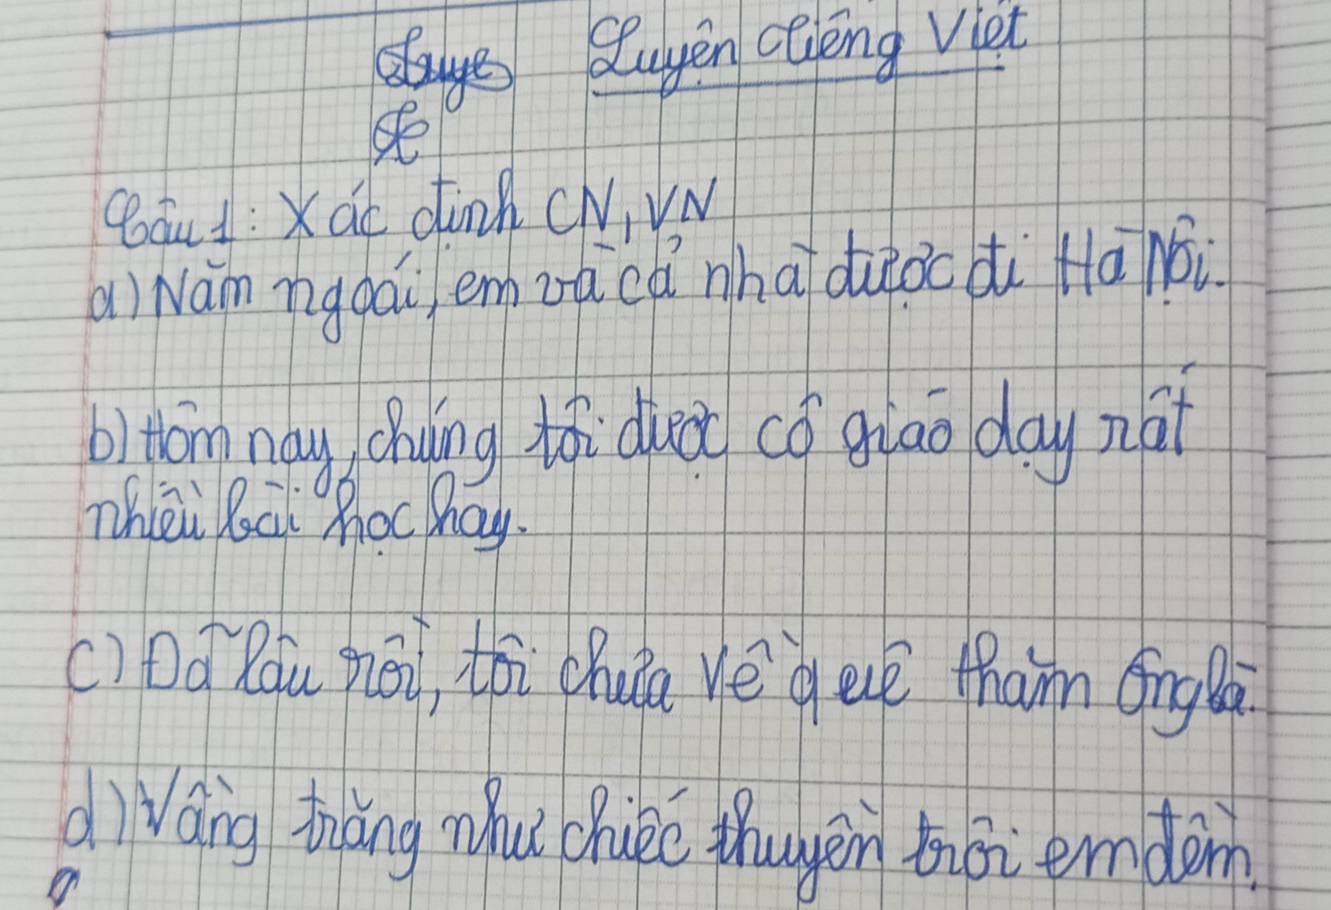 Luyện Tiếng Việt
Câu 1: Xác định CN, VN
a) Năm ngoái, em và cả nhà được đi Hà Nội.
b) Hôm nay, chúng tôi được cô giáo dạy rất
nhiều bài học hay.
c) Đã lâu rồi, tôi chưa về quê thăm ông bà.
d) Vầng trăng như chiếc thuyền trôi em đềm.